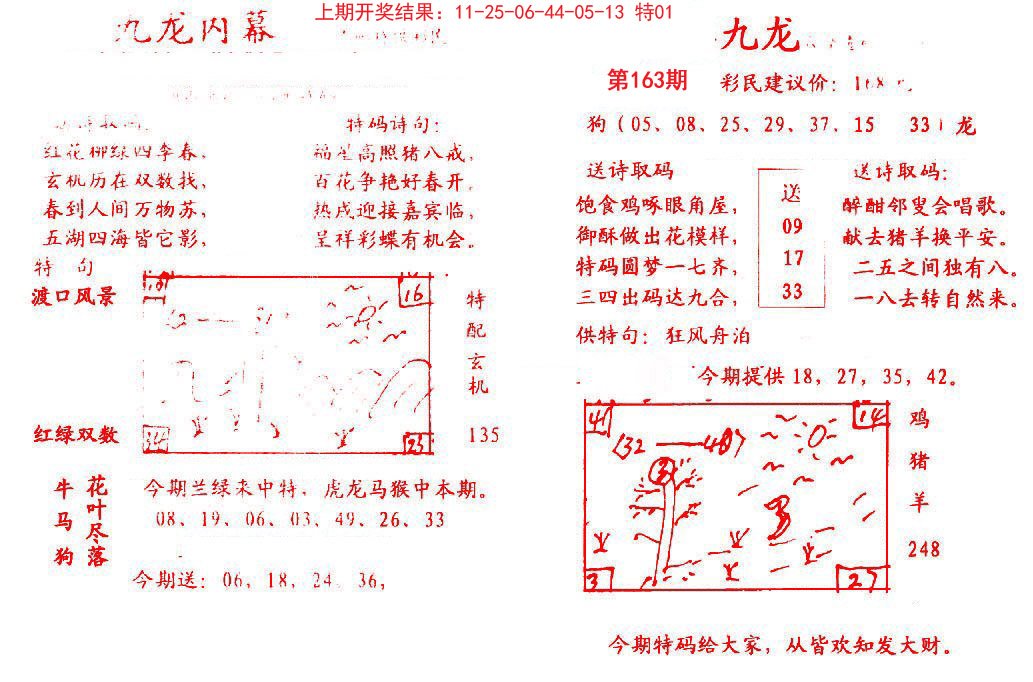 上期开奖结果：11-25-06-44-05-13 特01
九龙内幕
特码诗句：
红花柳绿四季春，
福星高照猪八戒，
玄机历在双数找，
百花争艳好春开。
春到人间万物苏，
热戌迎接嘉宾临，
五湖四海皆它影，
呈祥彩蝶有机会。
特 句
渡口风景
16
特配玄机
红绿双数
23
135
牛马狗
花叶尽落
今期兰绿来中特，虎龙马猴中本期。
08、19、06、03、49、26、33
今期送：06，18，24，36，
九龙
第163期
彩民建议价：168
狗（05、08、25、29、37、15 33）龙
送诗取码
饱食鸡啄眼角屋，
御酥做出花模样，
特码圆梦一七齐，
三四出码达九合，
送
09
17
33
送诗取码：
醉酣邻叟会唱歌。
献去猪羊换平安。
二五之间独有八。
一八去转自然来。
供特句：狂风舟泊
今期提供18，27，35，42。
41
14
32
40
3
27
鸡
猪
羊
248
今期特码给大家，从皆欢知发大财。